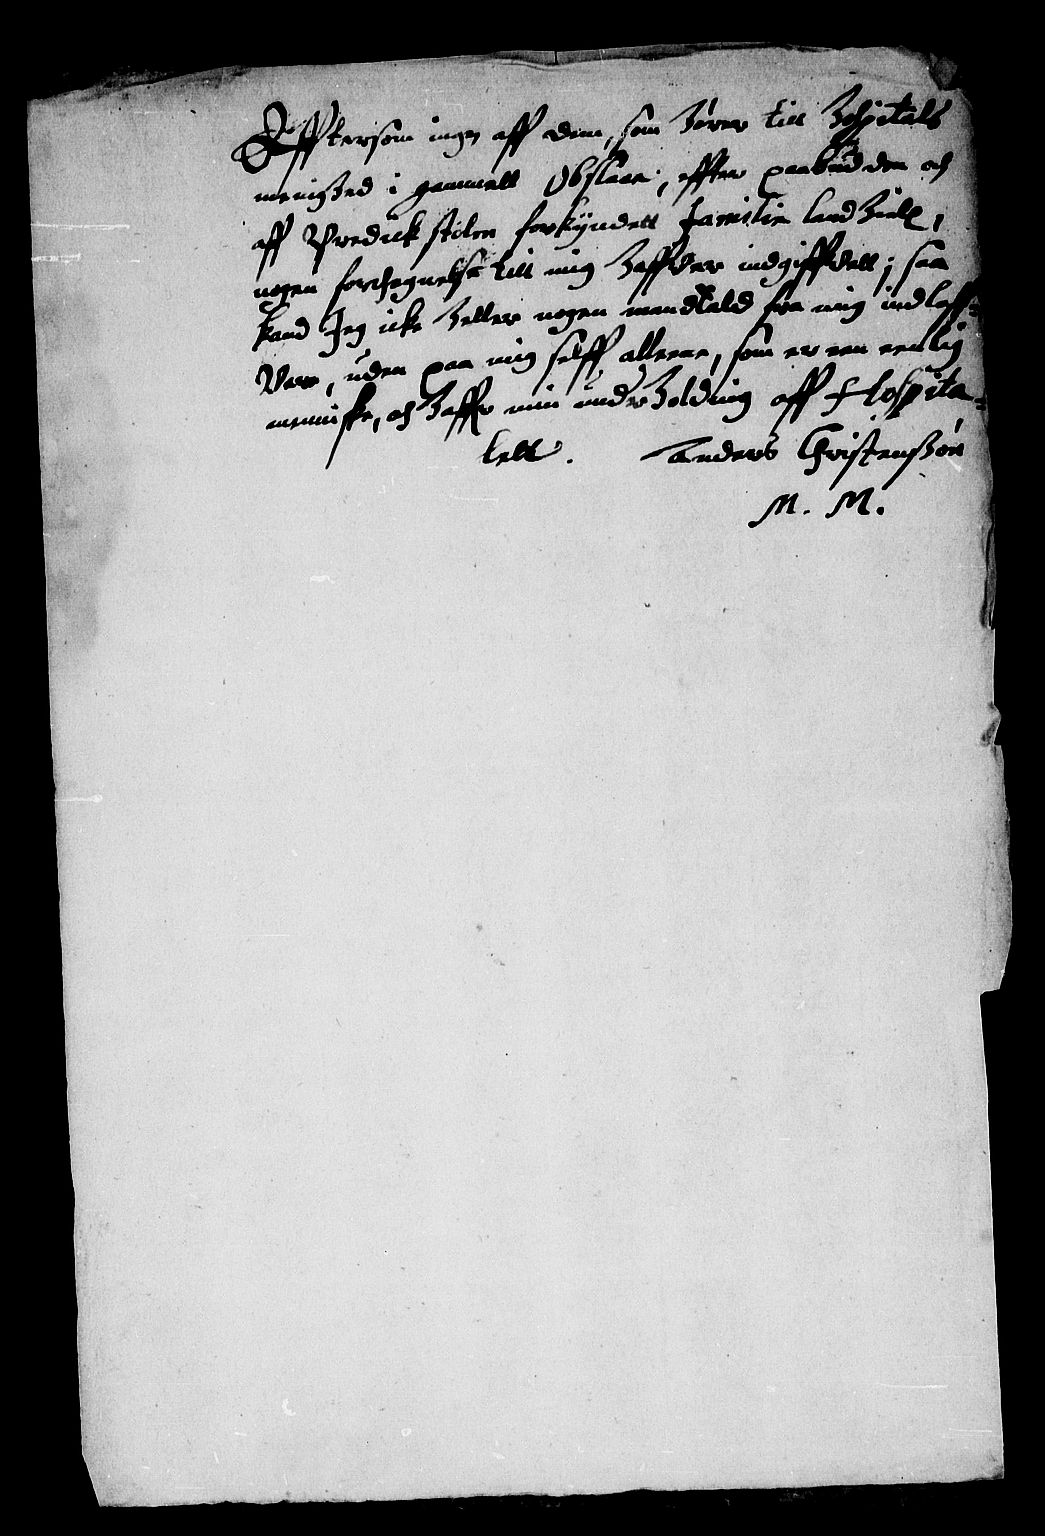 Effttersom ingen aff dem, som hører till Hospitals
menighed i gammell Obslaae, effter paabudden och
aff Predickstolen forkyndett familie land hielp,
nogen fortegnelse till mig haffver indgiffvett; saa
kand Jeg icke heller nogen mandtald fra mig indleff-
vere, uden paa mig selff alleene, som er een eenlig
menniske, och haffr min underholding aff Hospita-
lett. Anders Christenßøn
M. M.